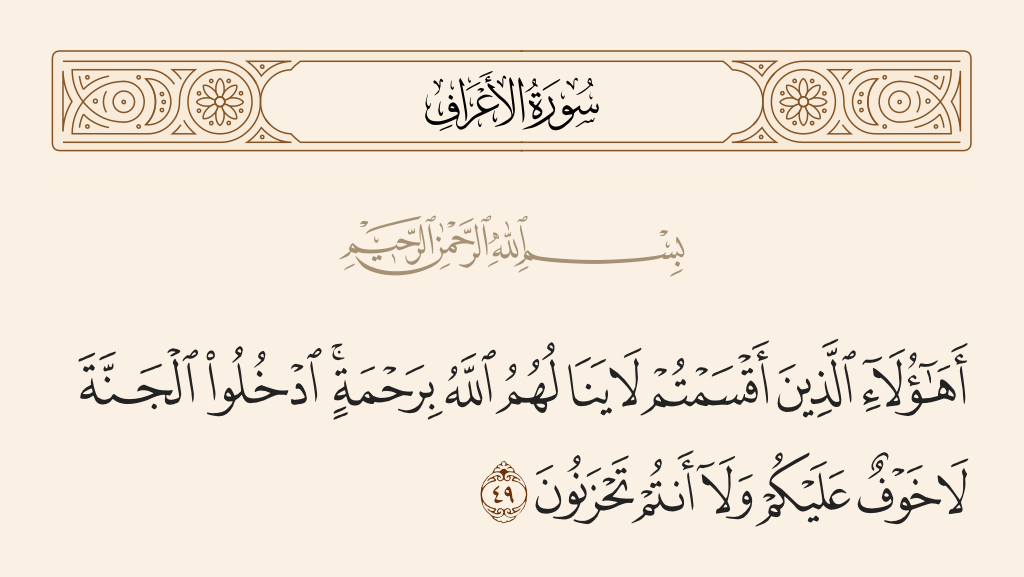 سُورَةُ الأَعْرَافِ
بِسْمِ ٱللَّهِ ٱلرَّحْمَٰنِ ٱلرَّحِيمِ
أَهَٰٓؤُلَآءِ ٱلَّذِينَ أَقْسَمْتُمْ لَا يَنَالُهُمُ ٱللَّهُ بِرَحْمَةٍ ۚ ٱدْخُلُوا۟ ٱلْجَنَّةَ
لَا خَوْفٌ عَلَيْكُمْ وَلَآ أَنتُمْ تَحْزَنُونَ ٤٩